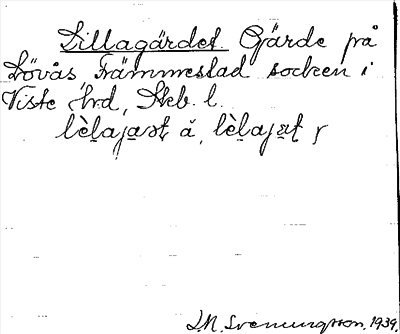 Lillagärdet. Gärde på
Lövås, Främmestad socken i
Viste hd, Skb. l.
lèlajaṣt̯ å, lèlajæt̯ ɼ
J.N. Svenungsson. 1939.